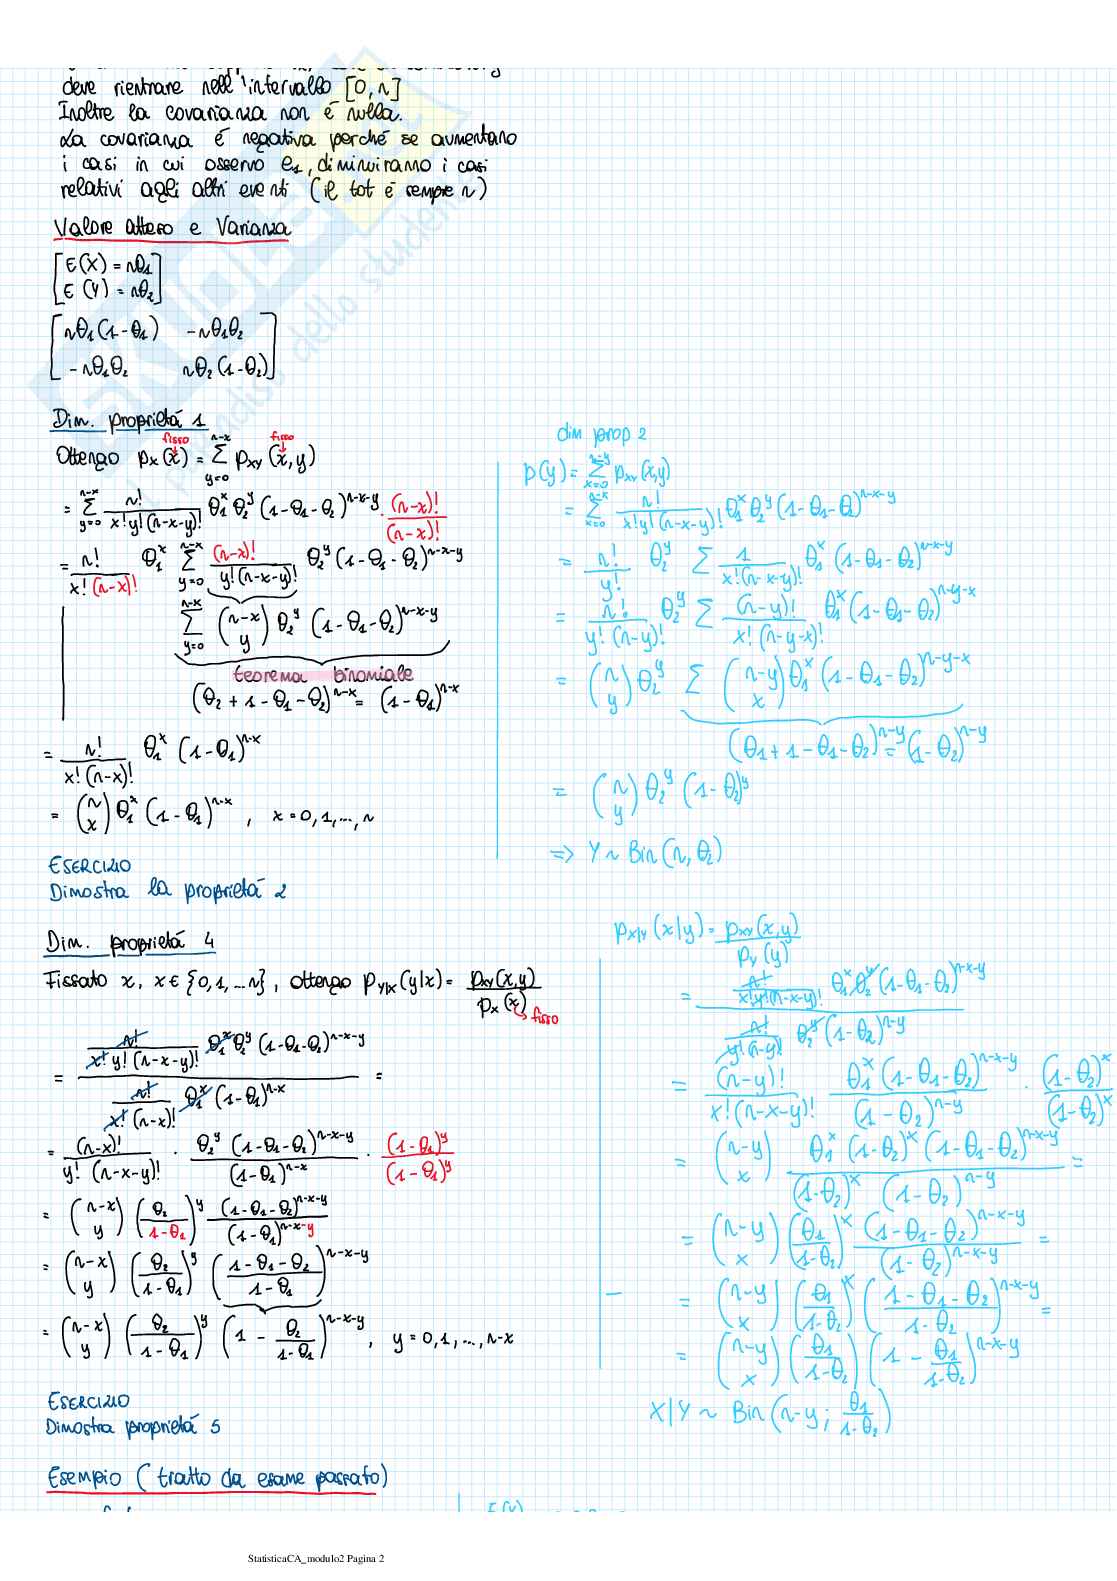 deve rientrare nell'intervallo [0,n]
Inoltre la covarianza non é nulla.
La covarianza é negativa perché se aumentano
i casi in cui osservo e₁, diminuiranno i casi
relativi agli altri eventi (il tot é sempre n)
Valore atteso e Varianza
[E(X) = nθ₁]
[E(Y) = nθ₂]
[nθ₁(1-θ₁)   -nθ₁θ₂]
[-nθ₁θ₂   nθ₂(1-θ₂)]
Dim. proprietá 1
fisso fisso
Ottengo pₓ(x) = Σ_{y=0}^{n-x} p_{XY}(x,y)
= Σ_{y=0}^{n-x} n!/(x!y!(n-x-y)!) θ₁^x θ₂^y (1-θ₁-θ₂)^{n-x-y} · (n-x)!/(n-x)!
= n!/(x!(n-x)!) θ₁^x Σ_{y=0}^{n-x} (n-x)!/(y!(n-x-y)!) θ₂^y (1-θ₁-θ₂)^{n-x-y}
Σ_{y=0}^{n-x} (n-x y) θ₂^y (1-θ₁-θ₂)^{n-x-y}
teorema binomiale
(θ₂+1-θ₁-θ₂)^{n-x} = (1-θ₁)^{n-x}
= n!/(x!(n-x)!) θ₁^x (1-θ₁)^{n-x}
= (n x) θ₁^x (1-θ₁)^{n-x} , x=0,1,...,n
ESERCIZIO
Dimostra la proprietá 2
dim prop 2
p(y) = Σ_{x=0}^{n-y} p_{XY}(x,y)
= Σ_{x=0}^{n-x} n!/(x!y!(n-x-y)!) θ₁^x θ₂^y (1-θ₁-θ₂)^{n-x-y}
= n!/y! θ₂^y Σ 1/(x!(n-x-y)!) θ₁^x (1-θ₁-θ₂)^{n-x-y}
= n!/(y!(n-y)!) θ₂^y Σ (n-y)!/(x!(n-y-x)!) θ₁^x (1-θ₁-θ₂)^{n-y-x}
= (n y) θ₂^y Σ (n-y x) θ₁^x (1-θ₁-θ₂)^{n-y-x}
(θ₁+1-θ₁-θ₂)^{n-y} = (1-θ₂)^{n-y}
= (n y) θ₂^y (1-θ₂)^y
=> Y ~ Bin(n, θ₂)
Dim. proprietá 4
Fissato x, x∈{0,1,...n}, ottengo p_{Y|X}(y|x) = p_{XY}(x,y)/pₓ(x)
fisso
= [n!/(x!y!(n-x-y)!) θ₁^x θ₂^y (1-θ₁-θ₂)^{n-x-y}] / [n!/(x!(n-x)!) θ₁^x (1-θ₁)^{n-x}] =
= (n-x)!/(y!(n-x-y)!) · θ₂^y (1-θ₁-θ₂)^{n-x-y}/(1-θ₁)^{n-x} · (1-θ₁)^y/(1-θ₁)^y
= (n-x y) (θ₂/(1-θ₁))^y (1-θ₁-θ₂)^{n-x-y}/(1-θ₁)^{n-x-y}
= (n-x y) (θ₂/(1-θ₁))^y ((1-θ₁-θ₂)/(1-θ₁))^{n-x-y}
= (n-x y) (θ₂/(1-θ₁))^y (1 - θ₂/(1-θ₁))^{n-x-y} , y=0,1,...,n-x
ESERCIZIO
Dimostra proprietá 5
p_{X|Y}(x|y) = p_{XY}(x,y)/p_Y(y)
= [n!/(x!y!(n-x-y)!) θ₁^x θ₂^y (1-θ₁-θ₂)^{n-x-y}] / [n!/(y!(n-y)!) θ₂^y (1-θ₂)^{n-y}]
= (n-y)!/(x!(n-x-y)!) θ₁^x (1-θ₁-θ₂)^{n-x-y}/(1-θ₂)^{n-y} · (1-θ₂)^x/(1-θ₂)^x
= (n-y x) θ₁^x (1-θ₂)^x (1-θ₁-θ₂)^{n-x-y}/((1-θ₂)^x (1-θ₂)^{n-y}) =
= (n-y x) (θ₁/(1-θ₂))^x (1-θ₁-θ₂)^{n-x-y}/(1-θ₂)^{n-x-y} =
= (n-y x) (θ₁/(1-θ₂))^x ((1-θ₁-θ₂)/(1-θ₂))^{n-x-y} =
= (n-y x) (θ₁/(1-θ₂)) (1 - θ₁/(1-θ₂))^{n-x-y}
X|Y ~ Bin(n-y; θ₁/(1-θ₂))
Esempio (tratto da esame passato)
StatisticaCA_modulo2 Pagina 2